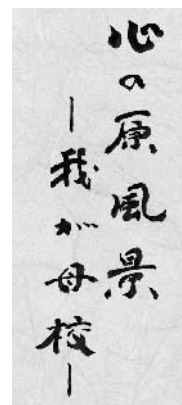 心の原風景
―我が母校―